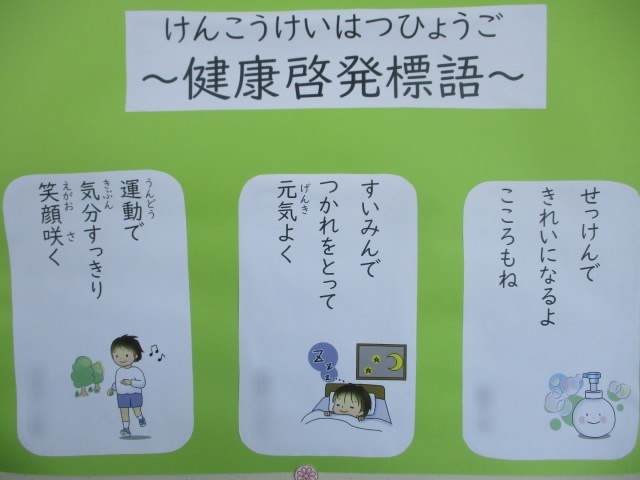 けんこうけいはつひょうご
～健康啓発標語～
せっけんで
きれいになるよ
こころもね
すいみんで
つかれをとって
元気よく
げんき
運動で
うんどう
気分すっきり
きぶん
笑顔咲く
えがお さ